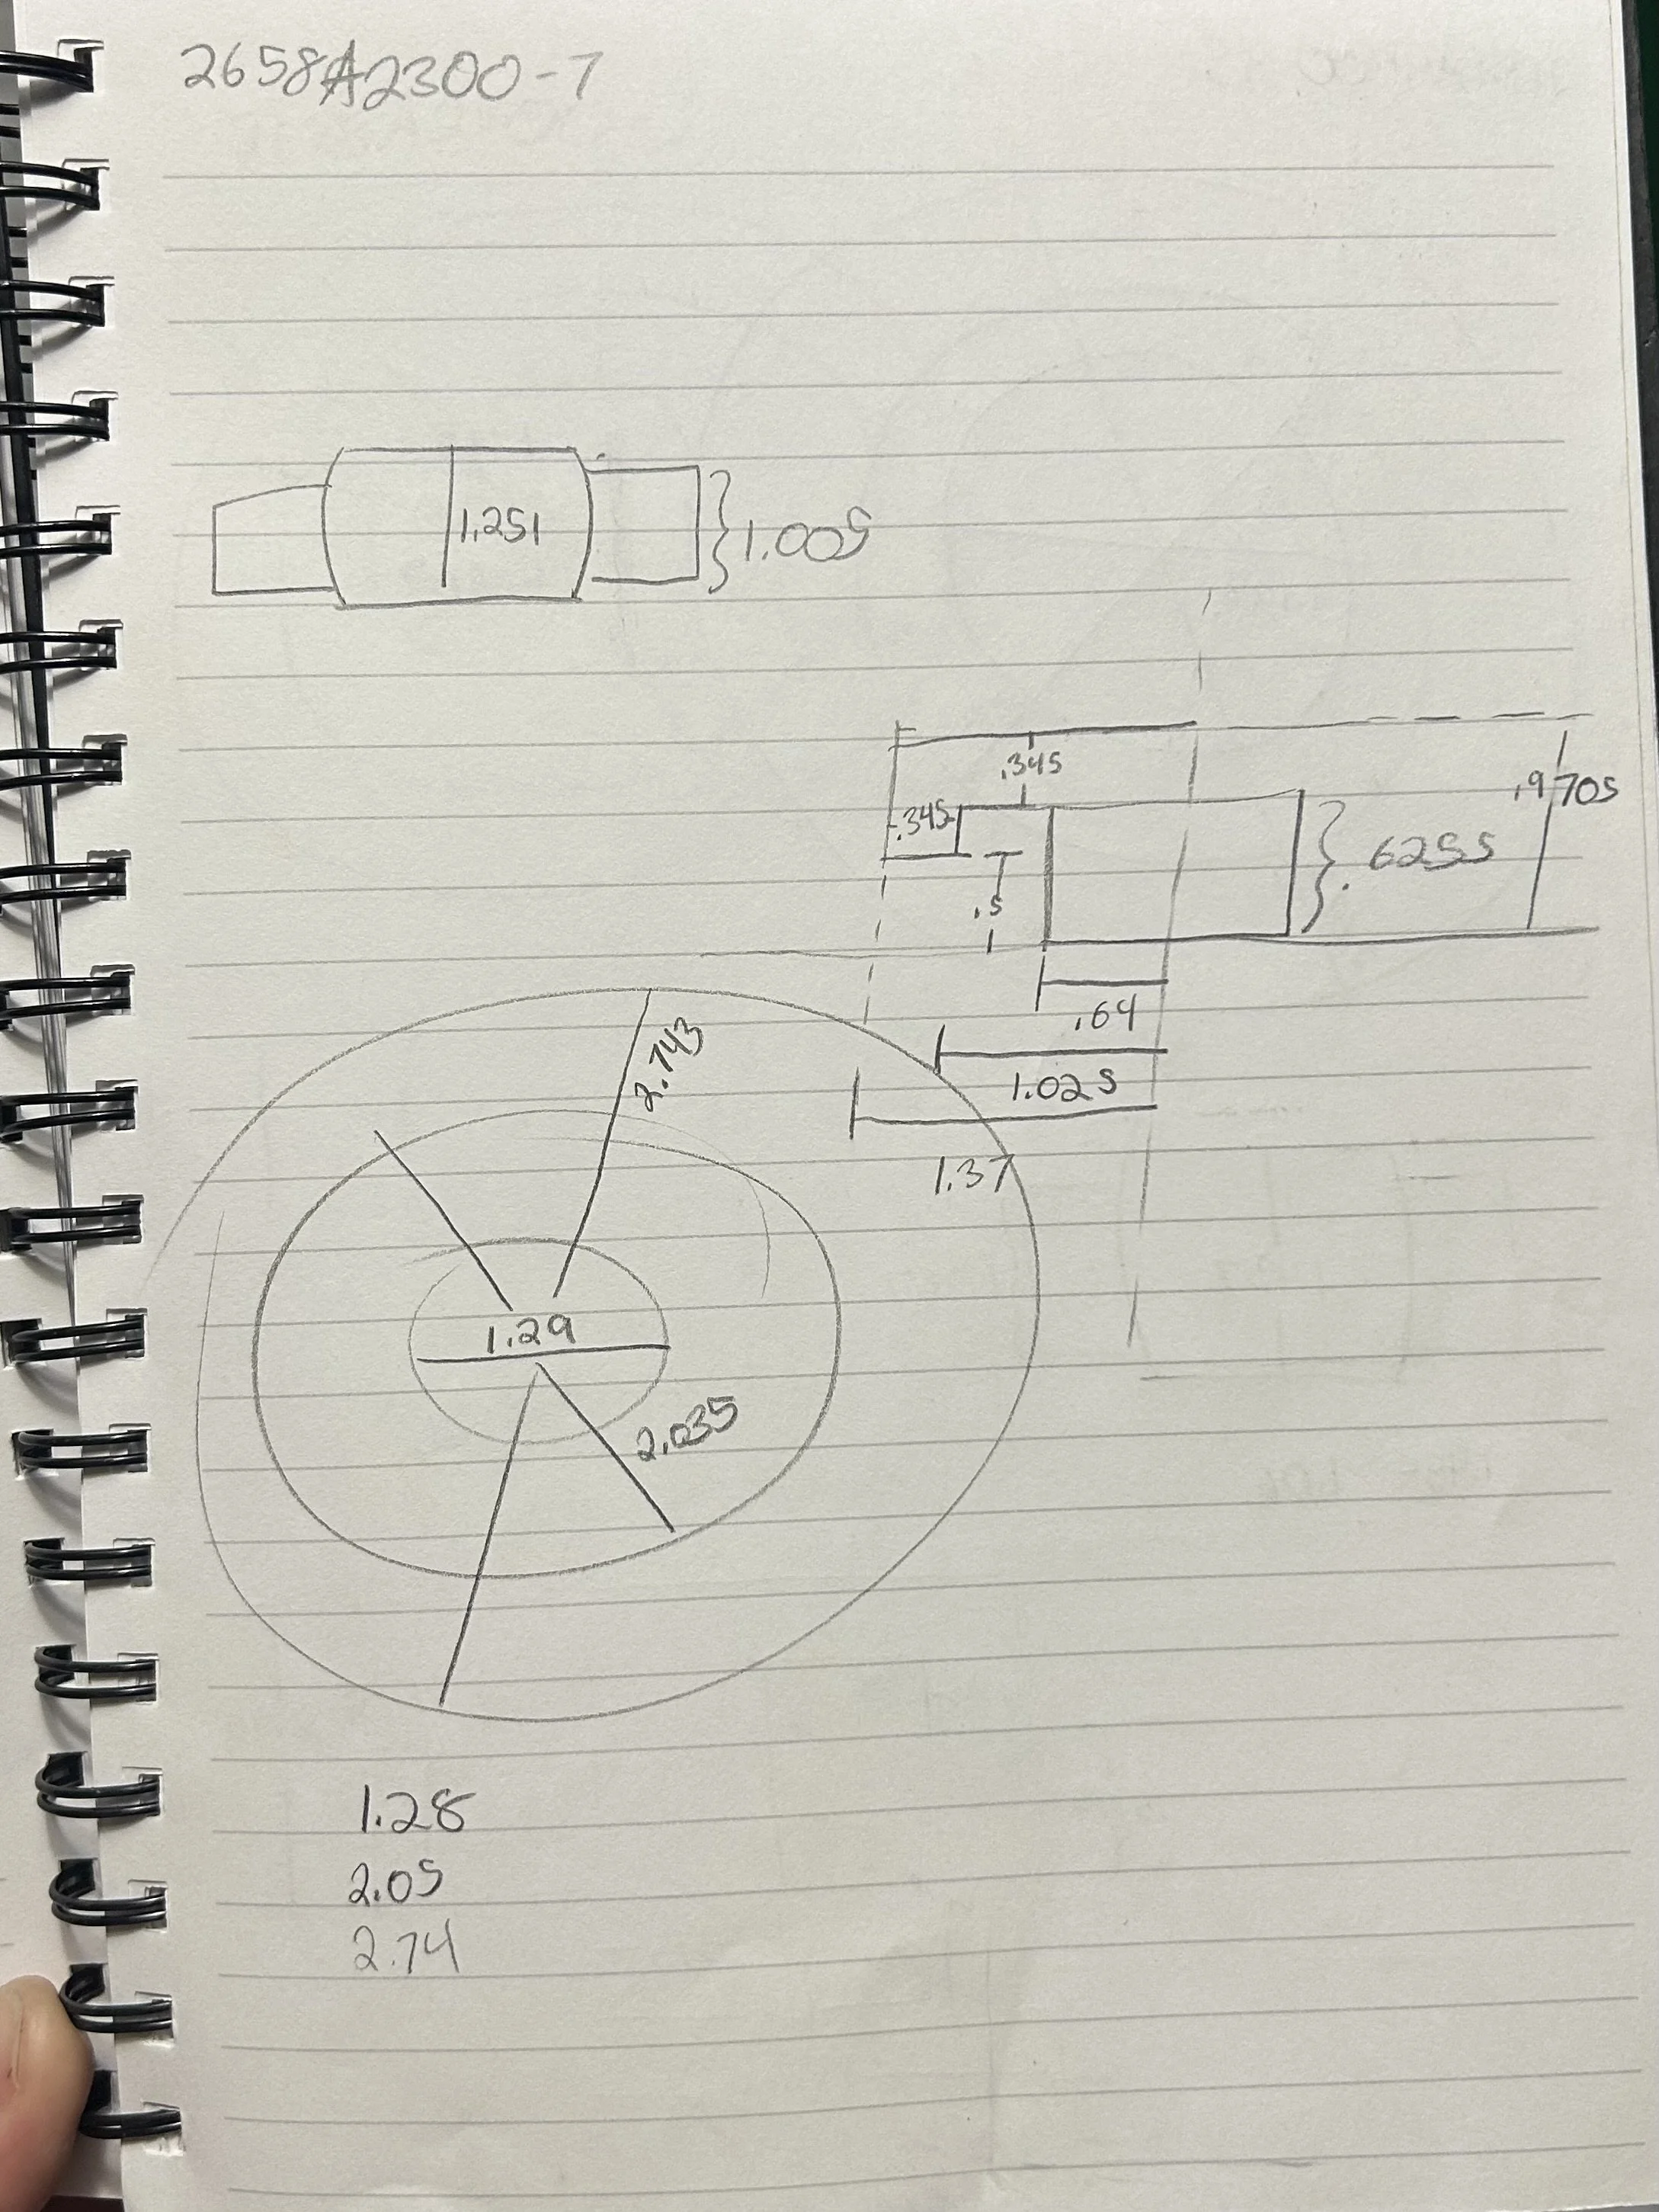 2658A2300-7
1.251
1.005
.345
.9705
.345
.6255
.5
.64
1.025
1.37
2.743
1.29
2.035
1.28
2.05
2.74